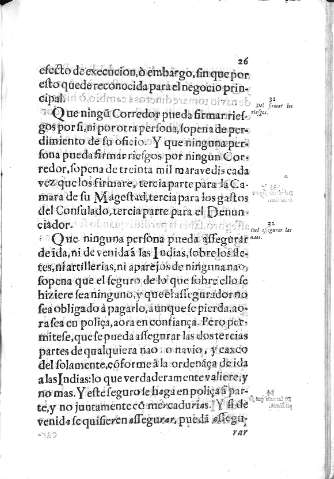 26
efecto de execucion, ò embargo, sin que por
esto quede reconocida para el negocio prin-
cipal.
Que ningũ Corredor pueda firmar ries-
gos por si, ni por otra persona, sopena de per-
dimiento de su oficio. Y que ninguna per-
sona pueda firmar riesgos por ningun Cor-
redor, sopena de treinta mil maravedis cada
vez que los firmare, tercia parte para la Ca-
mara de su Magestad, tercia para los gastos
del Consulado, tercia parte para el Denun-
ciador.
Que ninguna persona pueda assegurar
de ida, ni de venida â las Indias, sobre los fle-
tes, ni artillerias, ni aparejos de ninguna nao,
sopena que el seguro de lo que sobre ello se
hiziere sea ninguno, y que el assegurador no
sea obligado à pagarlo, aunque se pierda, ao-
ra sea en poliça, aora en confiança. Pero per-
mitese, que se pueda assegurar las dos tercias
partes de qualquiera nao, o navio, y caxco
del solamente, cõforme à la ordenãça de ida
a las Indias: lo que verdaderamente valiere, y
no mas. Y este seguro se haga en poliça â par-
te, y no juntamente cõ mercadurias. Y si de
venida se quisieren assegurar, pueda assegu-
rar
32
Del firmar los
riesgos.